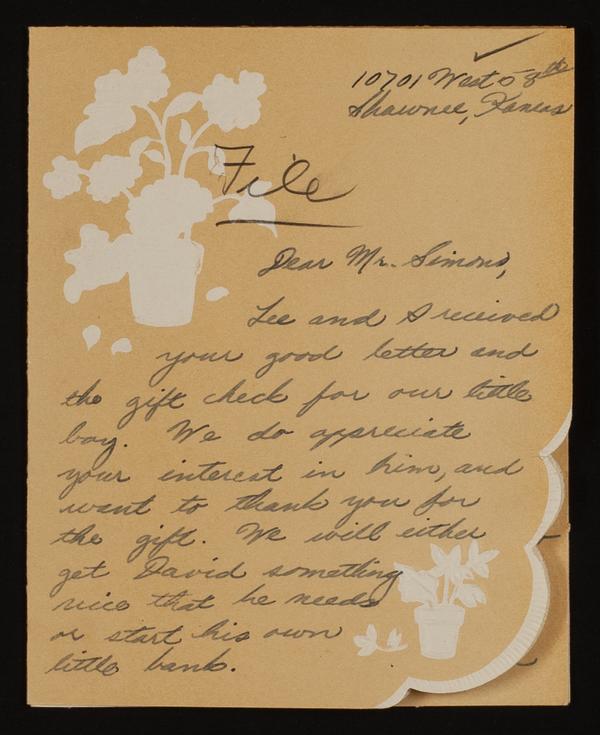 10701 West 58th
Shawnee, Kansas
File
Dear Mr. Simons,
Lee and I received
your good letter and
the gift check for our little
boy. We do appreciate
your interest in him, and
want to thank you for
the gift. We will either
get David something
nice that he needs
or start his own
little bank.